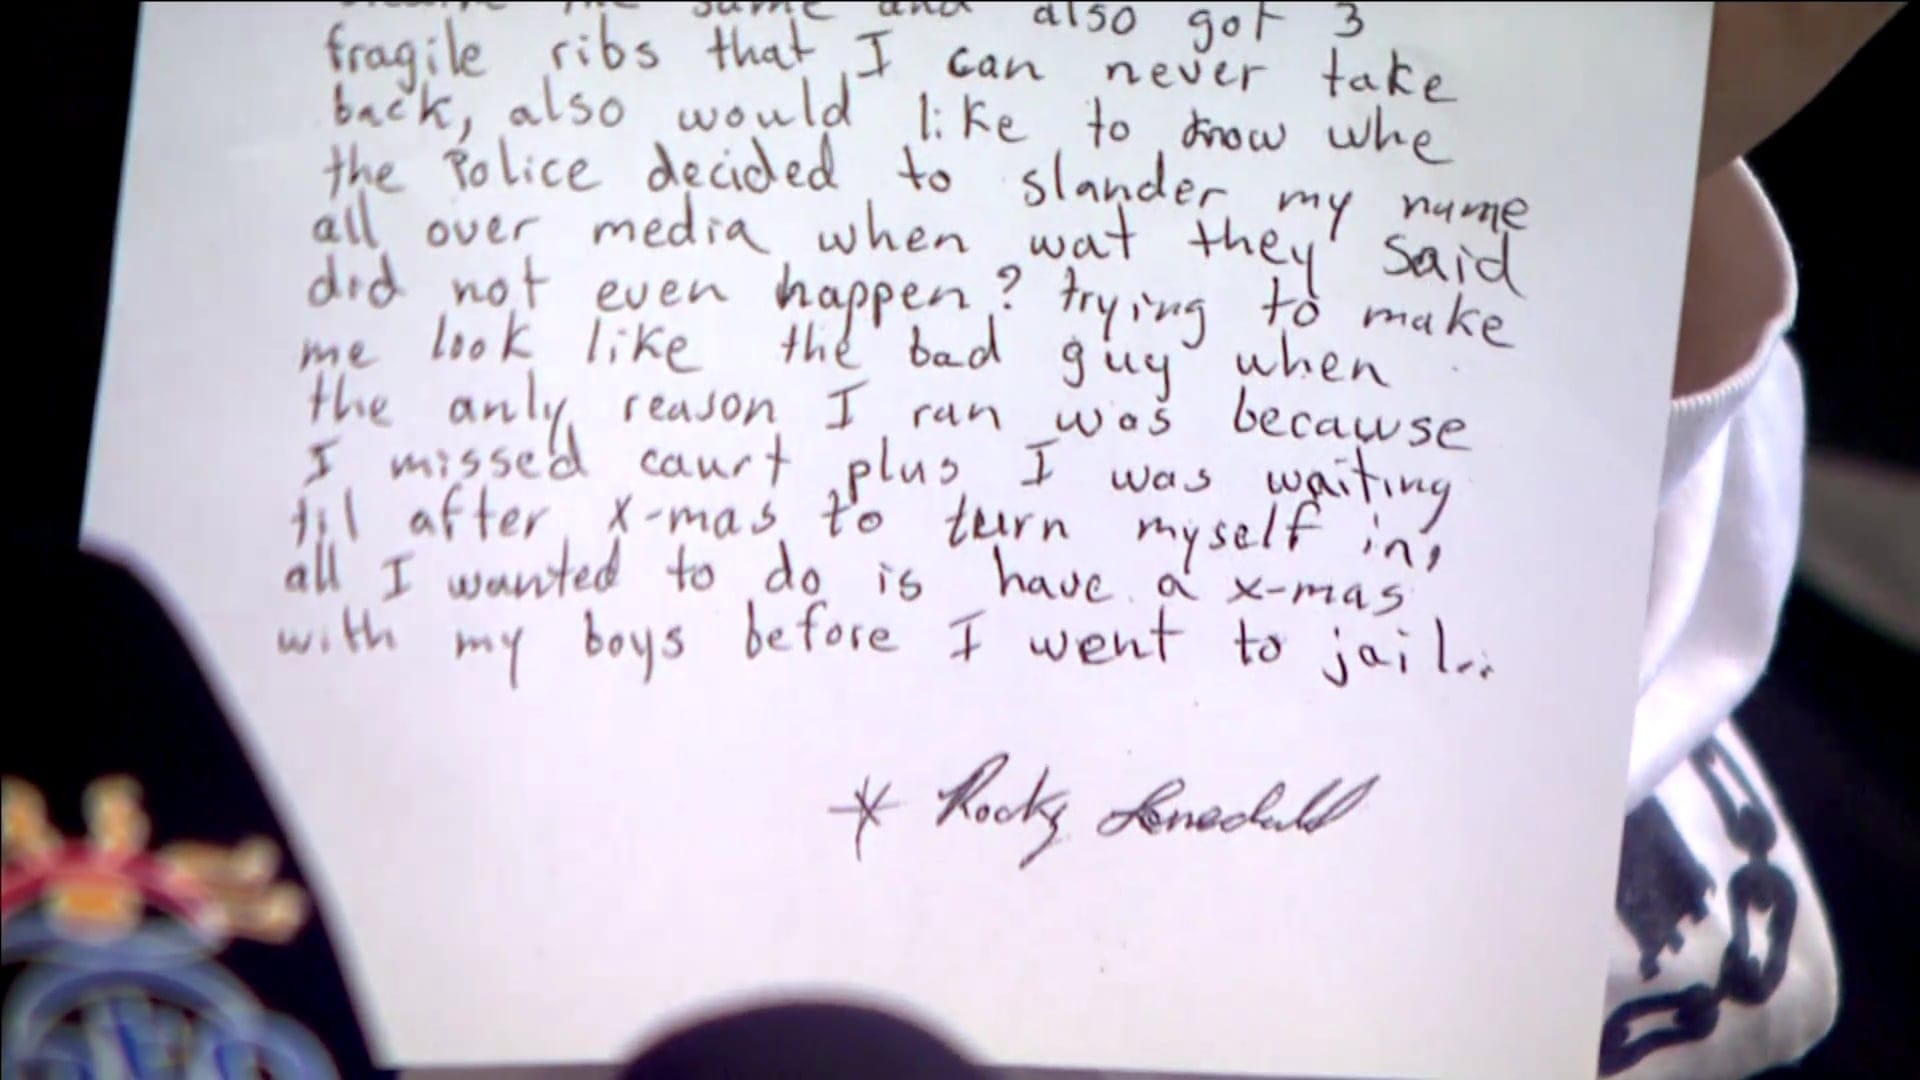 same and also got 3
fragile ribs that I can never take
back, also would like to know whe
the Police decided to slander my name
all over media when wat they said
did not even happen? trying to make
me look like the bad guy when
the anly reason I ran was because
I missed caurt plus I was waiting
til after x-mas to turn myself in,
all I wanted to do is have a x-mas
with my boys before I went to jail..
* Rocky